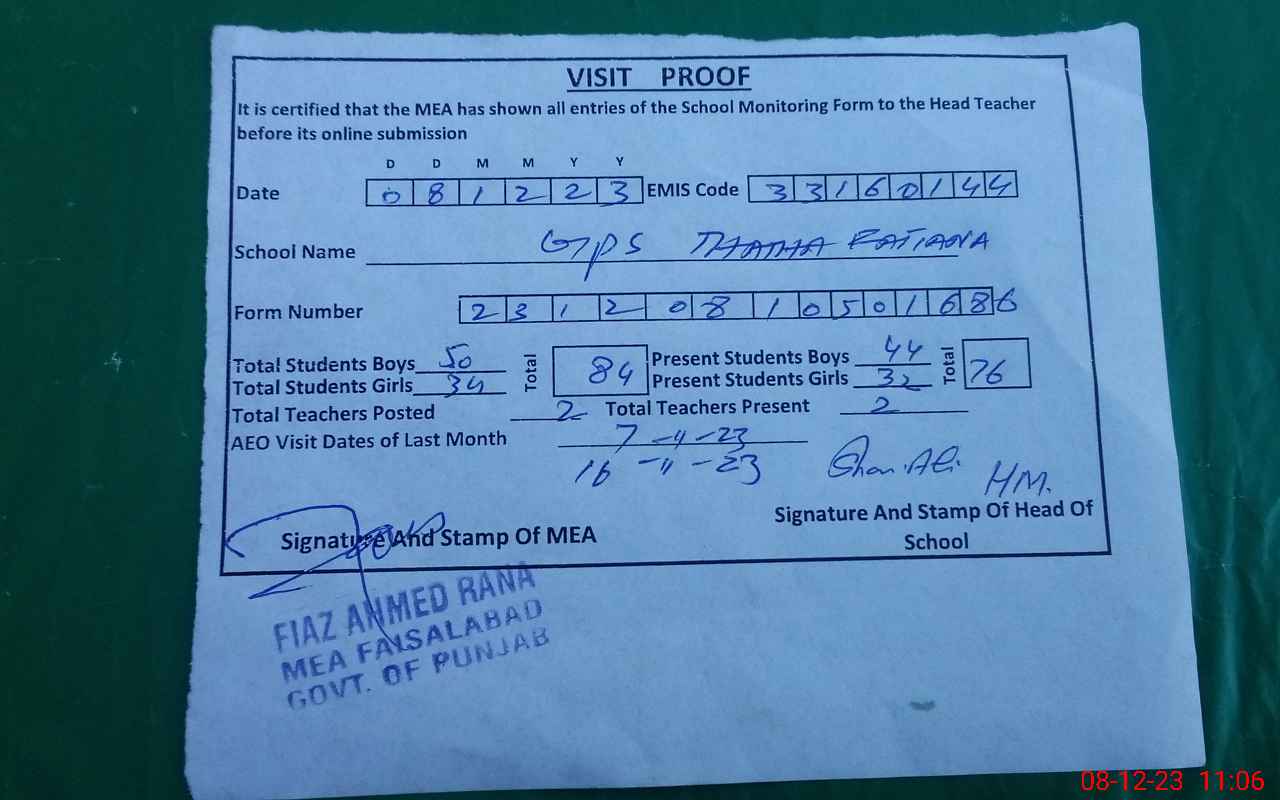 VISIT PROOF
It is certified that the MEA has shown all entries of the School Monitoring Form to the Head Teacher
before its online submission
D D M M Y Y
Date 0 8 1 2 2 3 EMIS Code 3 3 1 6 0 1 4 4
School Name GPS THATHA RATIANA
Form Number 2 3 1 2 0 8 1 0 5 0 1 6 8 6
Total Students Boys 50 Total 84 Present Students Boys 44 Total 76
Total Students Girls 34 Present Students Girls 32
Total Teachers Posted 2 Total Teachers Present 2
AEO Visit Dates of Last Month 7-11-23
16-11-23
HM.
Signature And Stamp Of MEA
Signature And Stamp Of Head Of
School
FIAZ AHMED RANA
MEA FAISALABAD
GOVT. OF PUNJAB
08-12-23 11:06